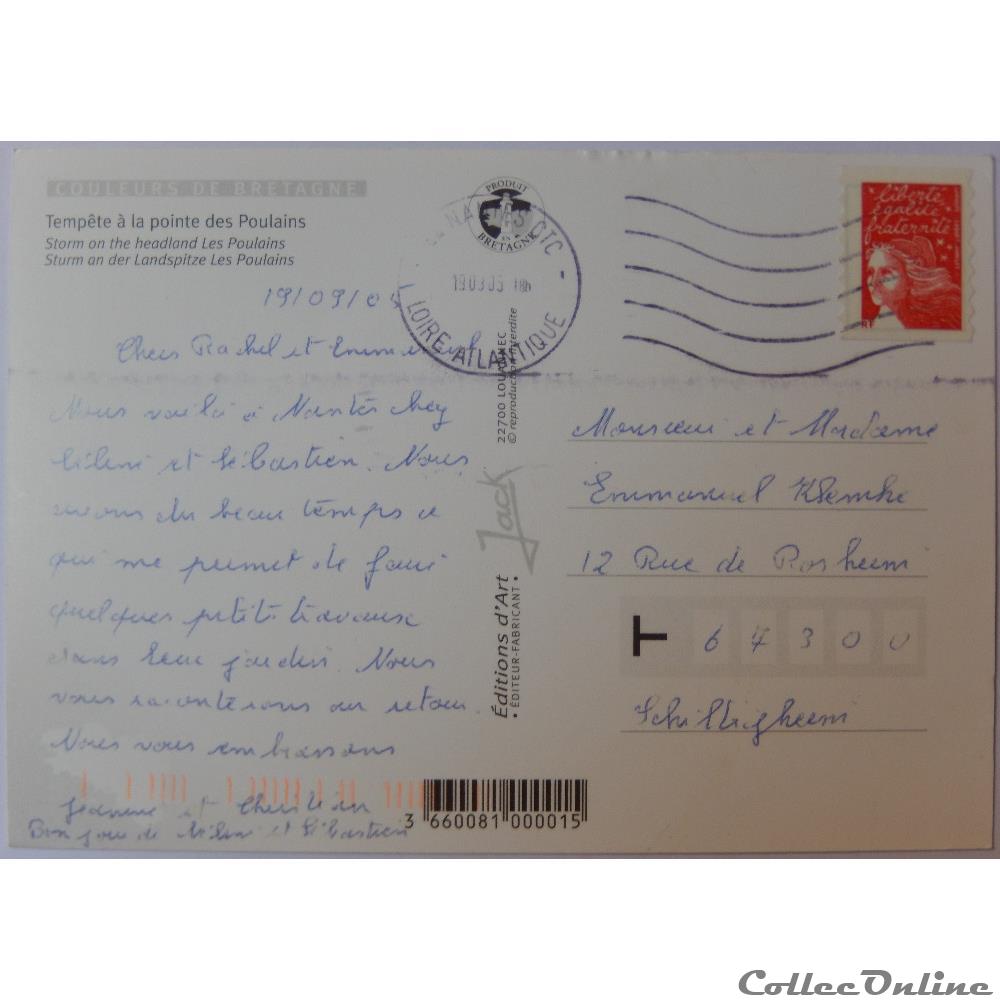 COULEURS DE BRETAGNE
Tempête à la pointe des Poulains
Storm on the headland Les Poulains
Sturm an der Landspitze Les Poulains
PRODUIT EN BRETAGNE
NANTES CTC -
LOIRE-ATLANTIQUE
18h
liberté
égalité
fraternité
RF
19/09/0
Chers Rachel et Emmanuel
Nous voilà à Nantes chez
et Sébastien. Nous
avons du beau temps ce
qui me permet de faire
quelques petits travaux
dans leur jardin. Nous
vous raconterons au retour.
Nous vous embrassons
Jeanine et Christian
Bonjour de et Sébastien
22700 LOUANNEC
© reproduction interdite
Jack
Éditions d'Art
• ÉDITEUR-FABRICANT •
Monsieur et Madame
Emmanuel Klemke
12 Rue de Rosheim
T 67300
Schiltigheim
3 660081 000015
CollecOnline